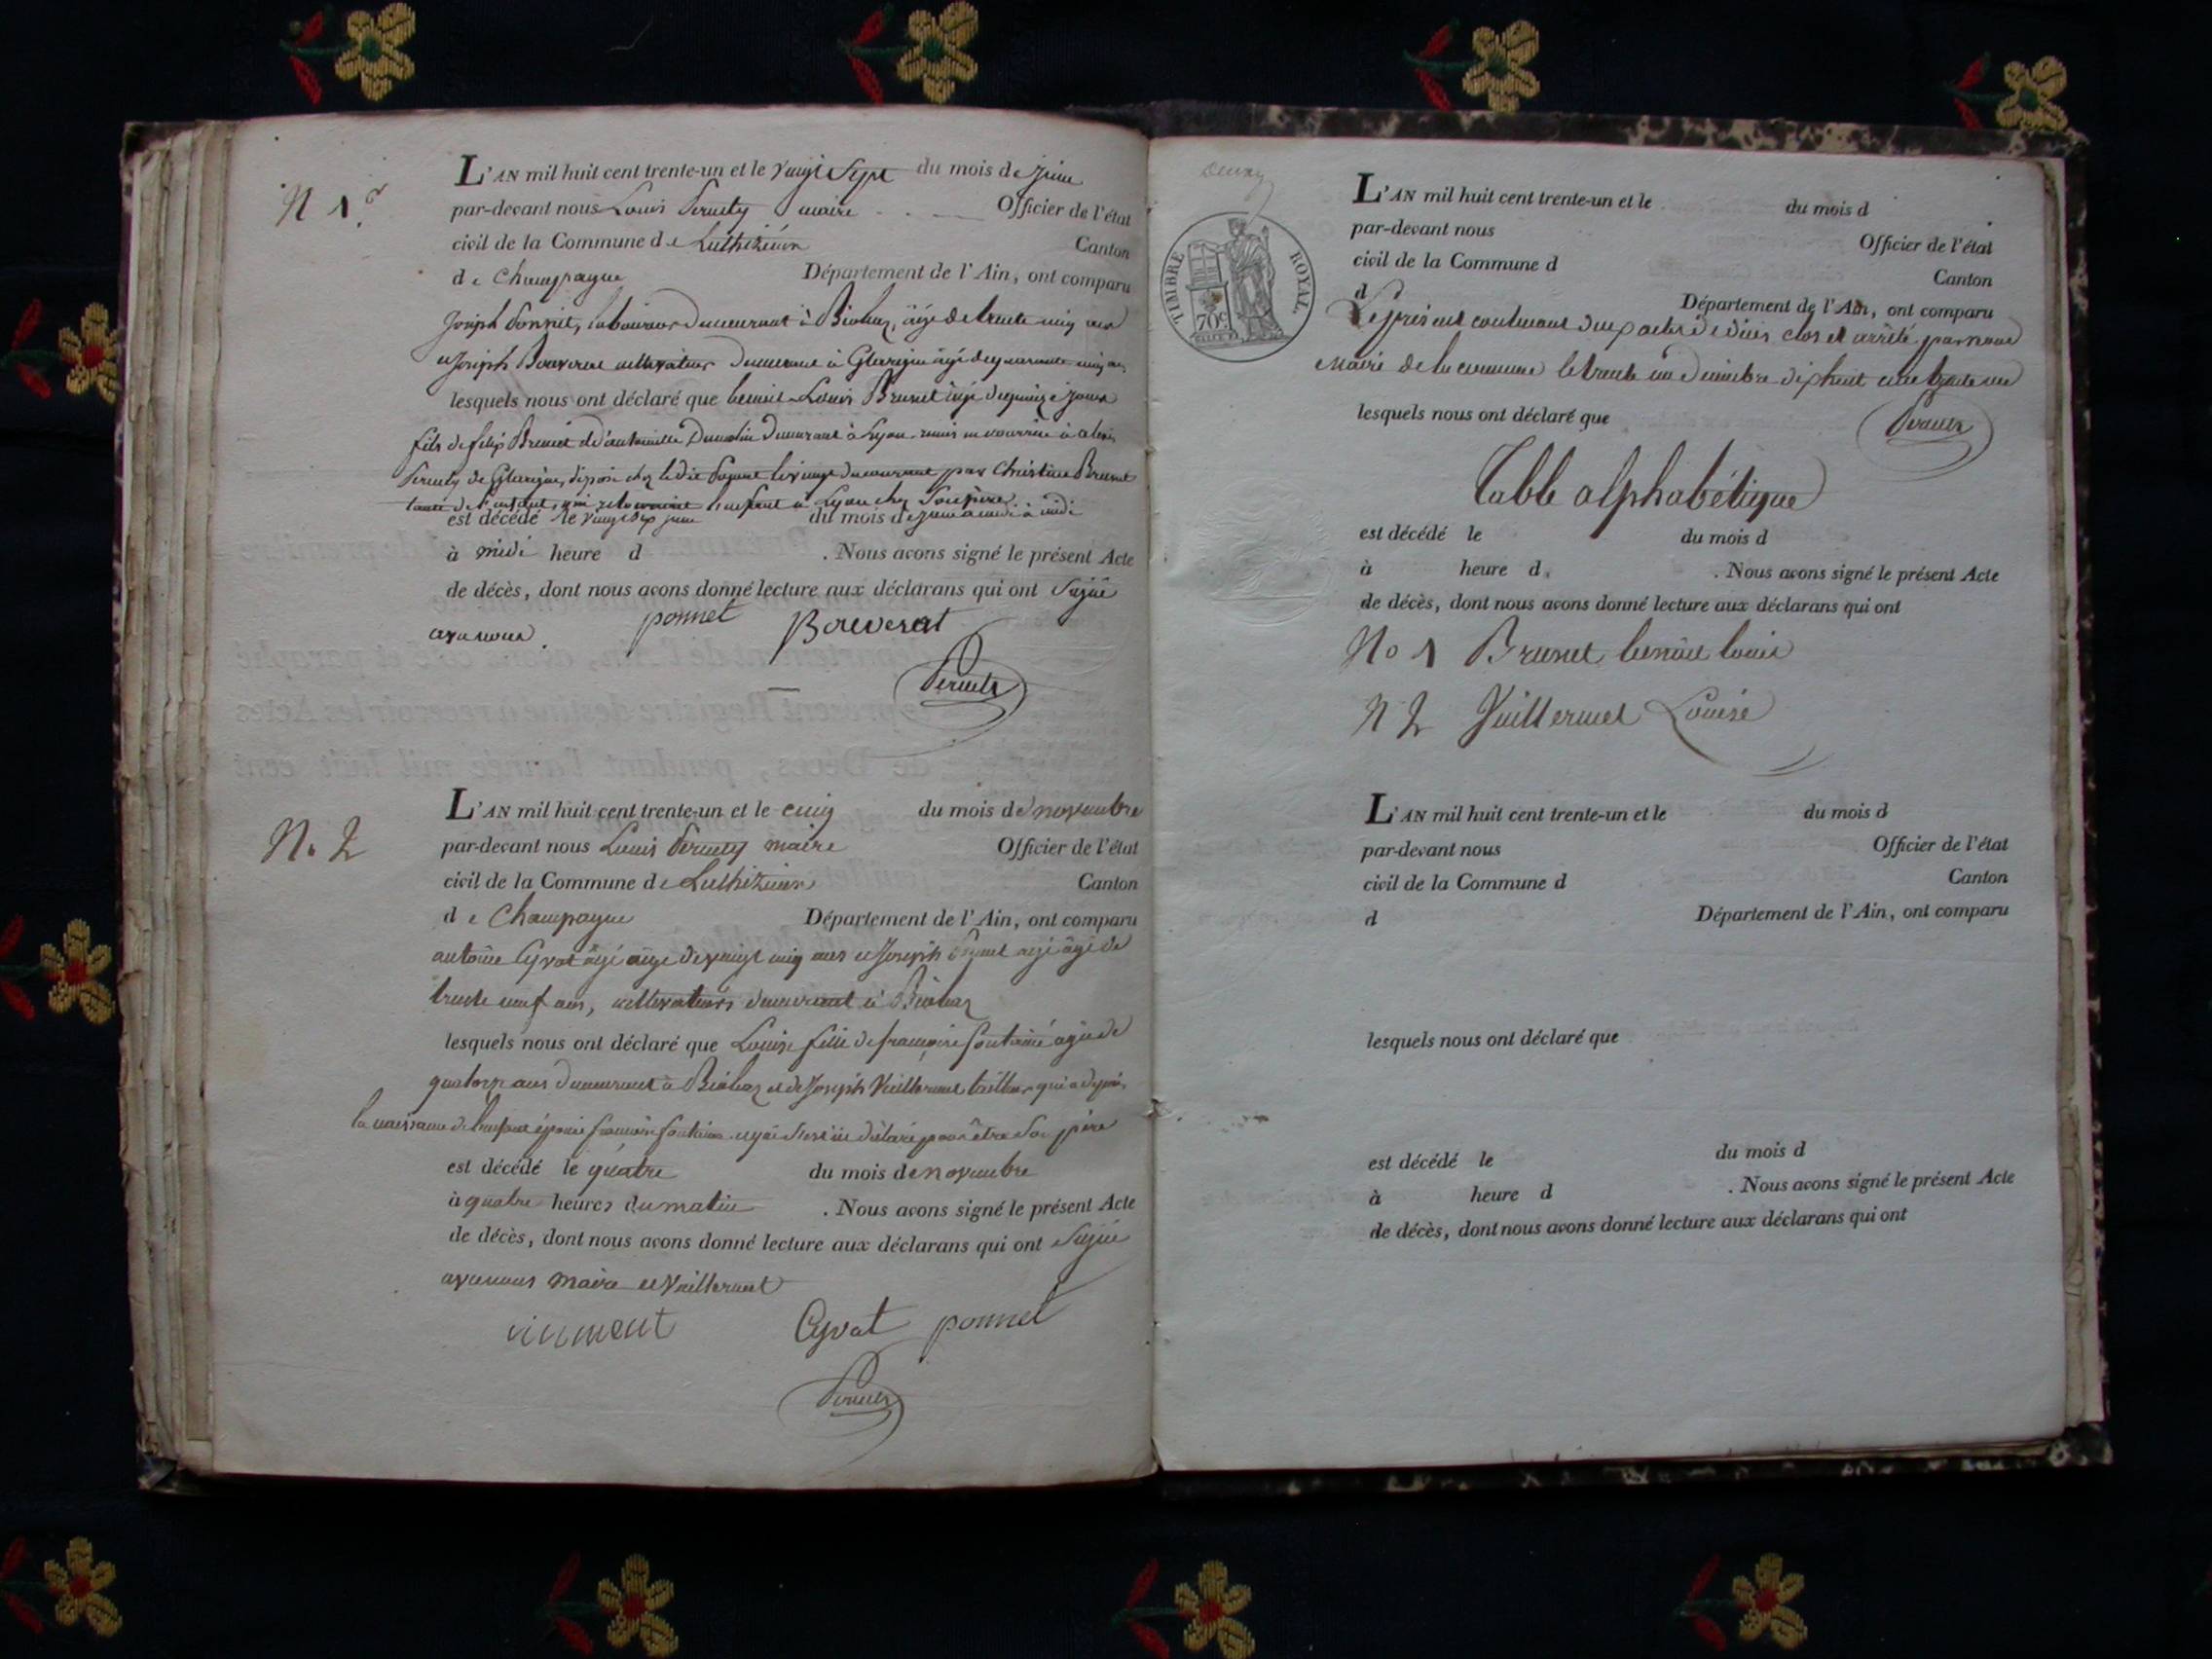 N 1.
L'AN mil huit cent trente-un et le vingt Sept du mois de juin
par-devant nous Louis maire Officier de l'état
civil de la Commune de Luthézieu Canton
de Champagne Département de l'Ain, ont comparu
Joseph Ponnet, laboureur demeurant à Biolaz, âgé de trente cinq ans
et Joseph cultivateur demeurant à âgé de quarante cinq ans
lesquels nous ont déclaré que benoit Louis Brunet âgé de quinze jours
fils de Brunet et d'antoinette demeurant à Lyon remis en nourrice à
de déposé chez le dit Ponnet le vingt du courant par Christine Brunet
tante de l'enfant, qui l'enfant à Lyon chez Son père
est décédé le vingt Sep juin du mois de juin à midi
à midi heure d . Nous avons signé le présent Acte
de décès, dont nous avons donné lecture aux déclarans qui ont Signé
avec nous.
ponnet Bouverat
N. 2
L'AN mil huit cent trente-un et le cinq du mois de novembre
par-devant nous Louis maire Officier de l'état
civil de la Commune de Luthézieu Canton
de Champagne Département de l'Ain, ont comparu
antoine Cyvat âgé âgé de vingt cinq ans et Joseph Ponnet âgé âgé de
trente neuf ans, cultivateurs demeurant à Biolaz
lesquels nous ont déclaré que Louise fille de françoise fontaine âgée de
quatorze ans demeurant à Biolaz et de Joseph Vuillermet tailleur qui a depuis
la naissance de l'enfant épousé françoise fontaine et qui s'est déclaré pour être Son père
est décédé le quatre du mois de novembre
à quatre heures du matin . Nous avons signé le présent Acte
de décès, dont nous avons donné lecture aux déclarans qui ont Signé
avec nous maire et Vuillermet
Cyvat ponnet
TIMBRE ROYAL
70c
L'AN mil huit cent trente-un et le du mois d
par-devant nous Officier de l'état
civil de la Commune d Canton
d Département de l'Ain, ont comparu
Le présent contenant deux actes de décès clos et arrêté par nous
Maire de la commune le trente un décembre dix huit cent trente un
lesquels nous ont déclaré que
Table alphabétique
est décédé le du mois d
à heure d . Nous avons signé le présent Acte
de décès, dont nous avons donné lecture aux déclarans qui ont
No 1 Brunet benoit louis
N 2 Vuillermet Louise
L'AN mil huit cent trente-un et le du mois d
par-devant nous Officier de l'état
civil de la Commune d Canton
d Département de l'Ain, ont comparu
lesquels nous ont déclaré que
est décédé le du mois d
à heure d . Nous avons signé le présent Acte
de décès, dont nous avons donné lecture aux déclarans qui ont